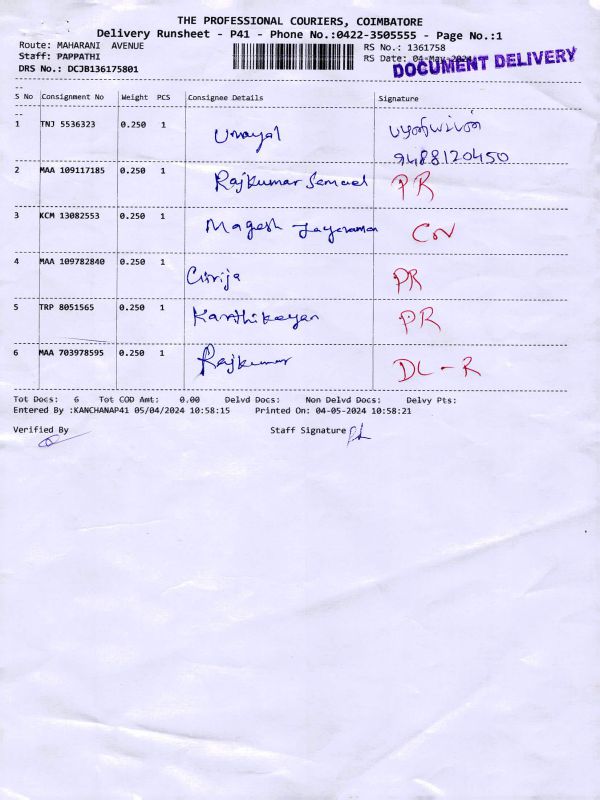 THE PROFESSIONAL COURIERS, COIMBATORE
Delivery Runsheet - P41 - Phone No.:0422-3505555 - Page No.:1
Route: MAHARANI AVENUE RS No.: 1361758
Staff: PAPPATHI RS Date: 04-May-2024
DRS No.: DCJB136175801 DOCUMENT DELIVERY
S No Consignment No Weight PCS Consignee Details Signature
1 TNJ 5536323 0.250 1
9488120450
2 MAA 109117185 0.250 1 Rajkumar Samuel PR
3 KCM 13082553 0.250 1 Magesh Jayaraman
4 MAA 109782840 0.250 1 Girija PR
5 TRP 8051565 0.250 1 Karthikeyan PR
6 MAA 703978595 0.250 1 Rajkumar DL-R
Tot Docs: 6 Tot COD Amt: 0.00 Delvd Docs: Non Delvd Docs: Delvy Pts:
Entered By :KANCHANAP41 05/04/2024 10:58:15 Printed On: 04-05-2024 10:58:21
Verified By Staff Signature